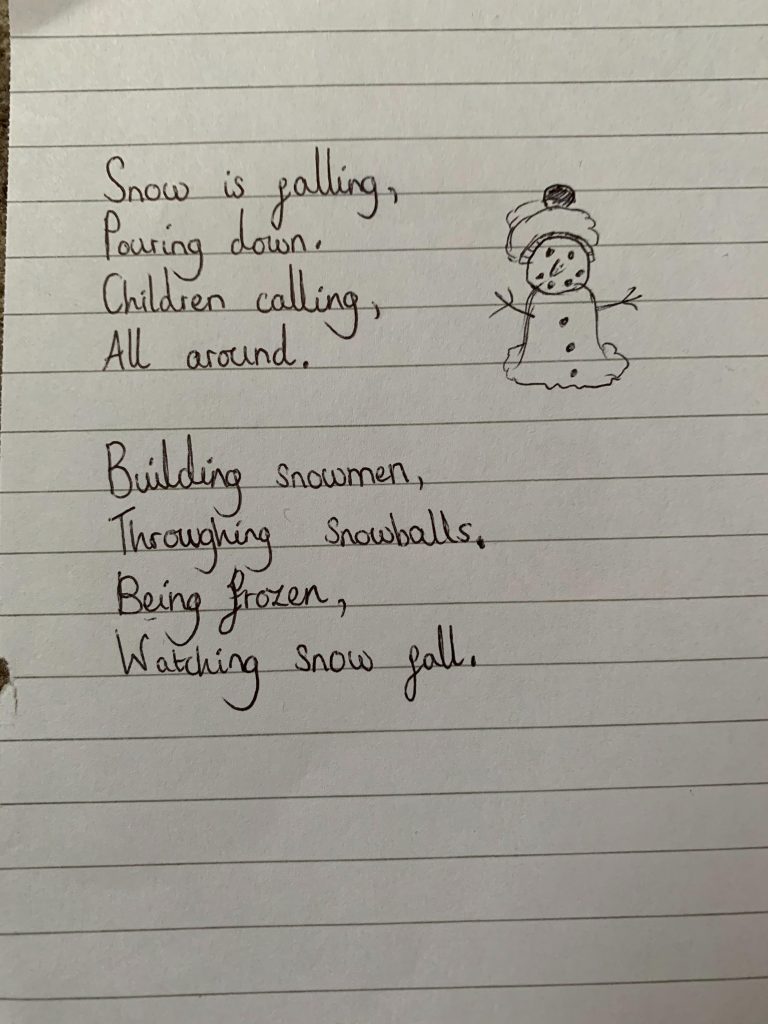 Snow is falling,
Pouring down.
Children calling,
All around.
Building snowmen,
Throughing snowballs.
Being frozen,
Watching snow fall.